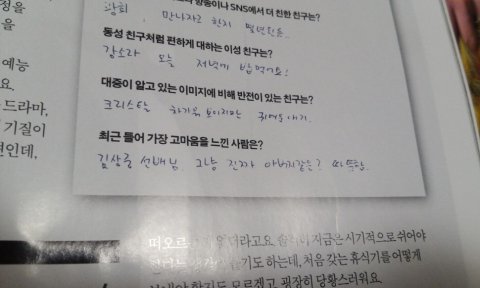 정을
을
예능
요.
드라마,
기질이
년인데,
SNS에서 더 친한 친구는?
광희, 만나자고 한지 몇년된듯..
동성 친구처럼 편하게 대하는 이성 친구는?
강소라 오늘 저녁에 밥먹어요!
대중이 알고 있는 이미지에 비해 반전이 있는 친구는?
크리스탈 차가워 보이지만 귀여운 애기.
최근 들어 가장 고마움을 느낀 사람은?
김상중 선배님. 그냥 진짜 아버지같은? 따뜻함.
떠오르 더라고요. 지금은 시기적으로 쉬어야
기도 하는데, 처음 갖는 휴식기를 어떻게
할지도 모르겠고, 굉장히 당황스러워요.